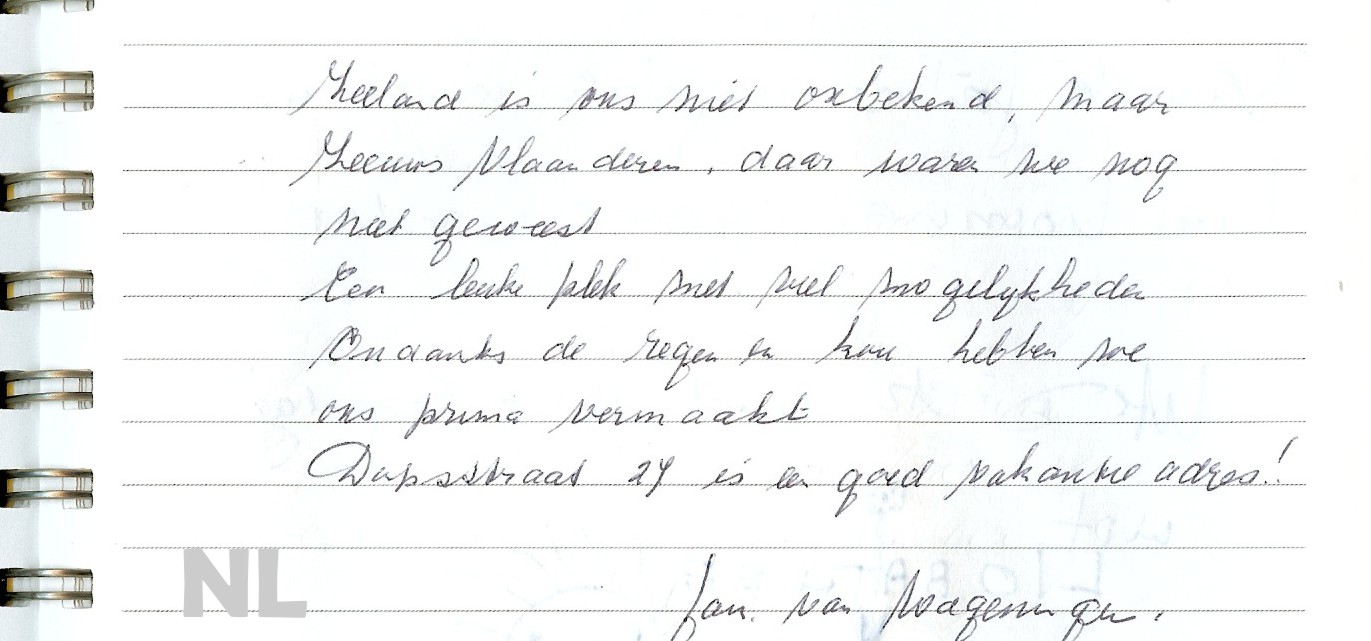 Zeeland is ons niet onbekend, maar
Zeeuws Vlaanderen, daar waren we nog
niet geweest
Een leuke plek met veel mogelijkheden
Ondanks de regen en kou hebben we
ons prima vermaakt
Dorpsstraat 24 is een goed vakantie adres!
NL
fam. van Wageningen.